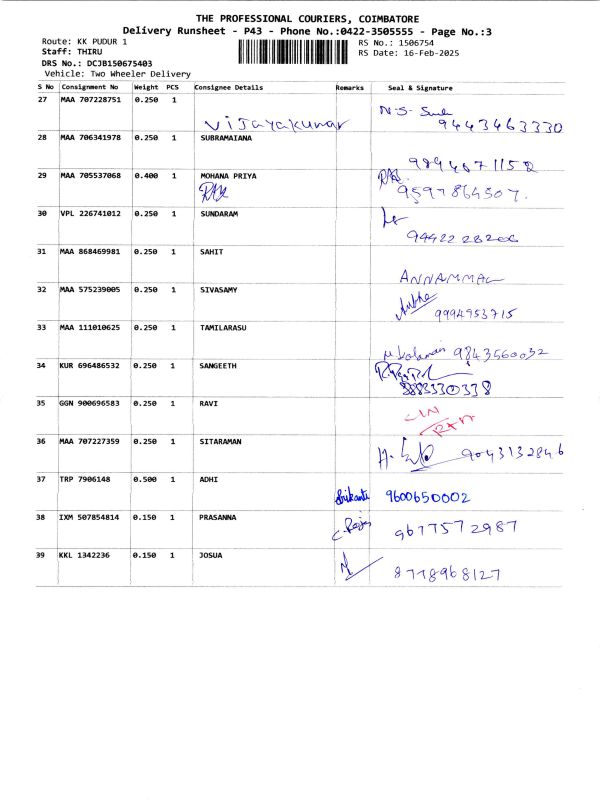 THE PROFESSIONAL COURIERS, COIMBATORE
Delivery Runsheet - P43 - Phone No.:0422-3505555 - Page No.:3
Route: KK PUDUR 1
RS No.: 1506754
Staff: THIRU
RS Date: 16-Feb-2025
DRS No.: DCJB150675403
Vehicle: Two Wheeler Delivery
S No Consignment No Weight PCS Consignee Details Remarks Seal & Signature
27 MAA 707228751 0.250 1
Vijayakumar 9443463330
28 MAA 706341978 0.250 1 SUBRAMAIANA
29 MAA 705537068 0.400 1 MOHANA PRIYA
9597864507.
30 VPL 226741012 0.250 1 SUNDARAM
31 MAA 868469981 0.250 1 SAHIT
ANNAMMAL
32 MAA 575239005 0.250 1 SIVASAMY
9994953715
33 MAA 111010625 0.250 1 TAMILARASU
9843560032
34 KUR 696486532 0.250 1 SANGEETH
8883330338
35 GGN 900696583 0.250 1 RAVI
36 MAA 707227359 0.250 1 SITARAMAN
9043132846
37 TRP 7906148 0.500 1 ADHI
Srikanti 9600650002
38 IXM 507854814 0.150 1 PRASANNA
9677572987
39 KKL 1342236 0.150 1 JOSUA
8778968127